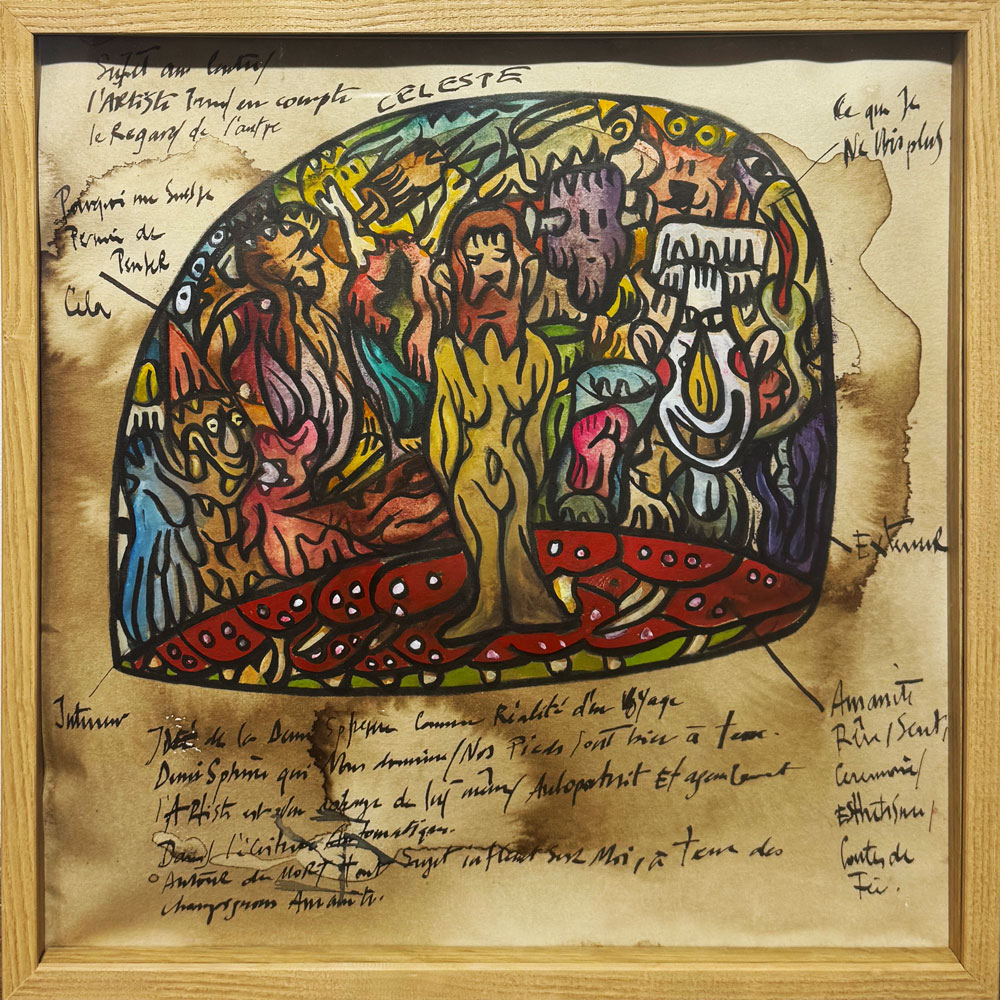 Sujet au centre/
l'Artiste Prend en compte
le Regard de l'autre
CELESTE
Ce que Je
Ne Vois plus
Pourquoi me
Permis de
Penser
Cela
Exterieur
Interieur
Idée de la Demi Sphere Comme Réalité d'un Voyage
Demi Sphère qui Nous domine/Nos Pieds sont bien à terre.
l'Artiste est de lui même/ Autoportrait Et
Dans l'écriture Automatique.
Autour du MORT tout Sujet influent sur Moi, à terre des
champignons Amanite.
Amanite
Rêve/
Ceremonie/
Esthetisme/
Contes de
Fée.